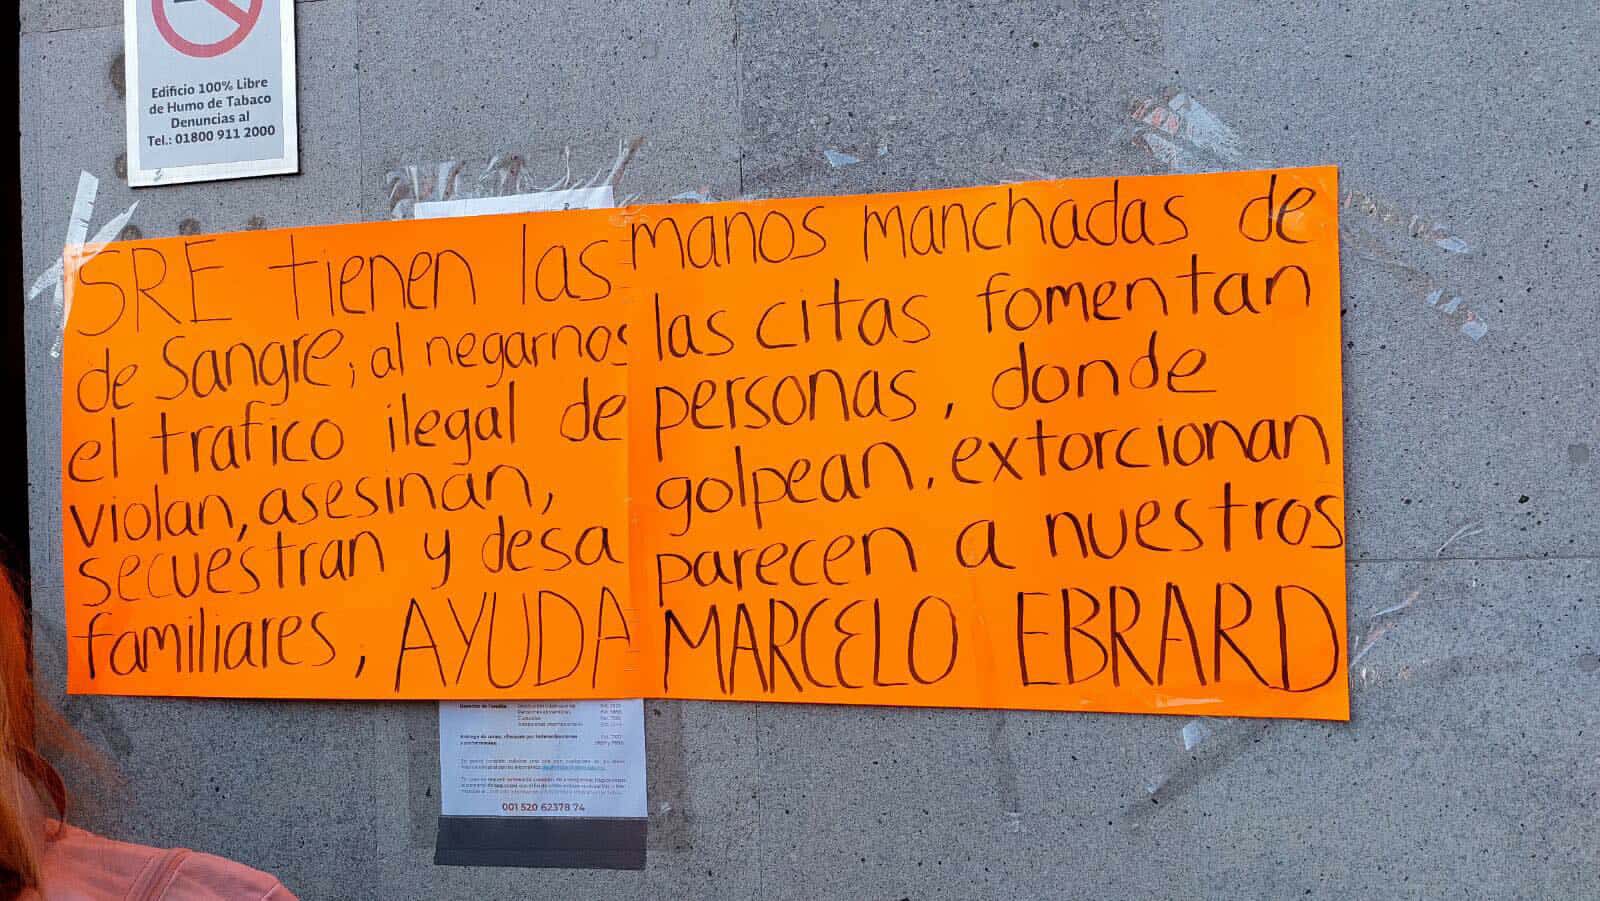 Edificio 100% Libre
de Humo de Tabaco
Denuncias al
Tel.: 01800 911 2000
SRE tienen las manos manchadas de
de Sangre, al negarnos las citas fomentan
el trafico ilegal de personas, donde
violan, asesinan, golpean, extorcionan
secuestran y desa parecen a nuestros
familiares, AYUDA MARCELO EBRARD
001 520 62378 74